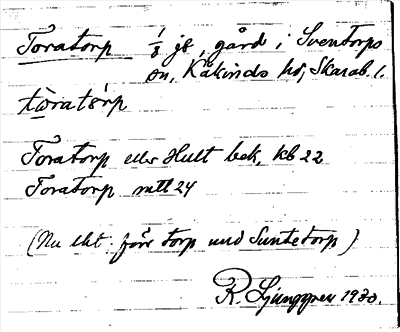 Toratorp 1/8 jb, gård i Sventorps
sn, Kåkinds hd, Skarab. l.
tòratὸrp
Toratorp eller Hult bek, kb 22
Toratorp mtl 24
(Nu ekt. förr torp und Suntetorp)
R. Ljunggren 1930.